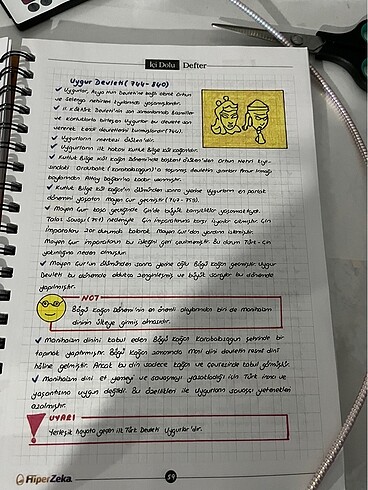 İçi Dolu Defter
Uygur Devleti (744-840)
✓ Uygurlar, Asya Hun Devleti'ne bağlı olarak Orhun
ve Selenga nehirleri kıyılarında yaşamışlardır.
✓ II. Kök Türk Devleti'nin son zamanlarında Basmiller
ve Karluklarla birleşen Uygurlar bu devlete son
vererek kendi devletlerini kurmuşlardır (744).
✓ Uygurların merkezi Ötüken'dir.
✓ Uygurların ilk hakanı Kutluk Bilge Kül Kağan'dır.
✓ Kutluk Bilge Kül Kağan döneminde başkent Ötüken'den Orhun Nehri kıyı-
sındaki Ordubalık (Karabalasagun)'a taşınmış, devletin sınırları
boylarından Altay Dağlarına kadar varmıştır.
✓ Kutluk Bilge Kül Kağan'ın ölümünden sonra yerine Uygurların en parlak
dönemini yaşatan Moyen Çur geçmiştir (747-759).
✓ Moyen Çur başa geçtiğinde Çin'de büyük karışıklıklar yaşanmaktaydı.
Talas Savaşı (751) nedeniyle Çin imparatoruna karşı isyanlar çıkmıştır. Çin
imparatoru zor durumda kalarak Moyen Çur'dan yardım istemiştir.
Moyen Çur imparatorun bu isteğini geri çevirmemiştir. Bu durum Türk-Çin
yakınlığına neden olmuştur.
✓ Moyen Çur'un ölümünden sonra yerine oğlu Bögü Kağan geçmiştir. Uygur
Devleti bu dönemde oldukça zenginleşmiş ve büyük savaşlar bu dönemde
yapılmıştır.
NOT
Bögü Kağan Dönemi'nin en önemli olaylarından biri de Manihaizm
dininin ülkeye girmiş olmasıdır.
✓ Manihaizm dinini kabul eden Bögü Kağan Karabalasagun şehrinde bir
tapınak yaptırmıştır. Bögü Kağan zamanında Mani dini devletin resmî dini
hâline gelmiştir. Ancak bu din sadece kağan ve çevresinde kabul görmüştür.
✓ Manihaizm dini et yemeyi ve savaşmayı yasakladığı için Türk inancı ve
yaşantısına uygun değildi. Bu özellikleri ile Uygurların savaşçı yetenekleri
azalmıştır.
UYARI
Yerleşik hayata geçen ilk Türk Devleti Uygurlar'dır.
HiperZeka
59